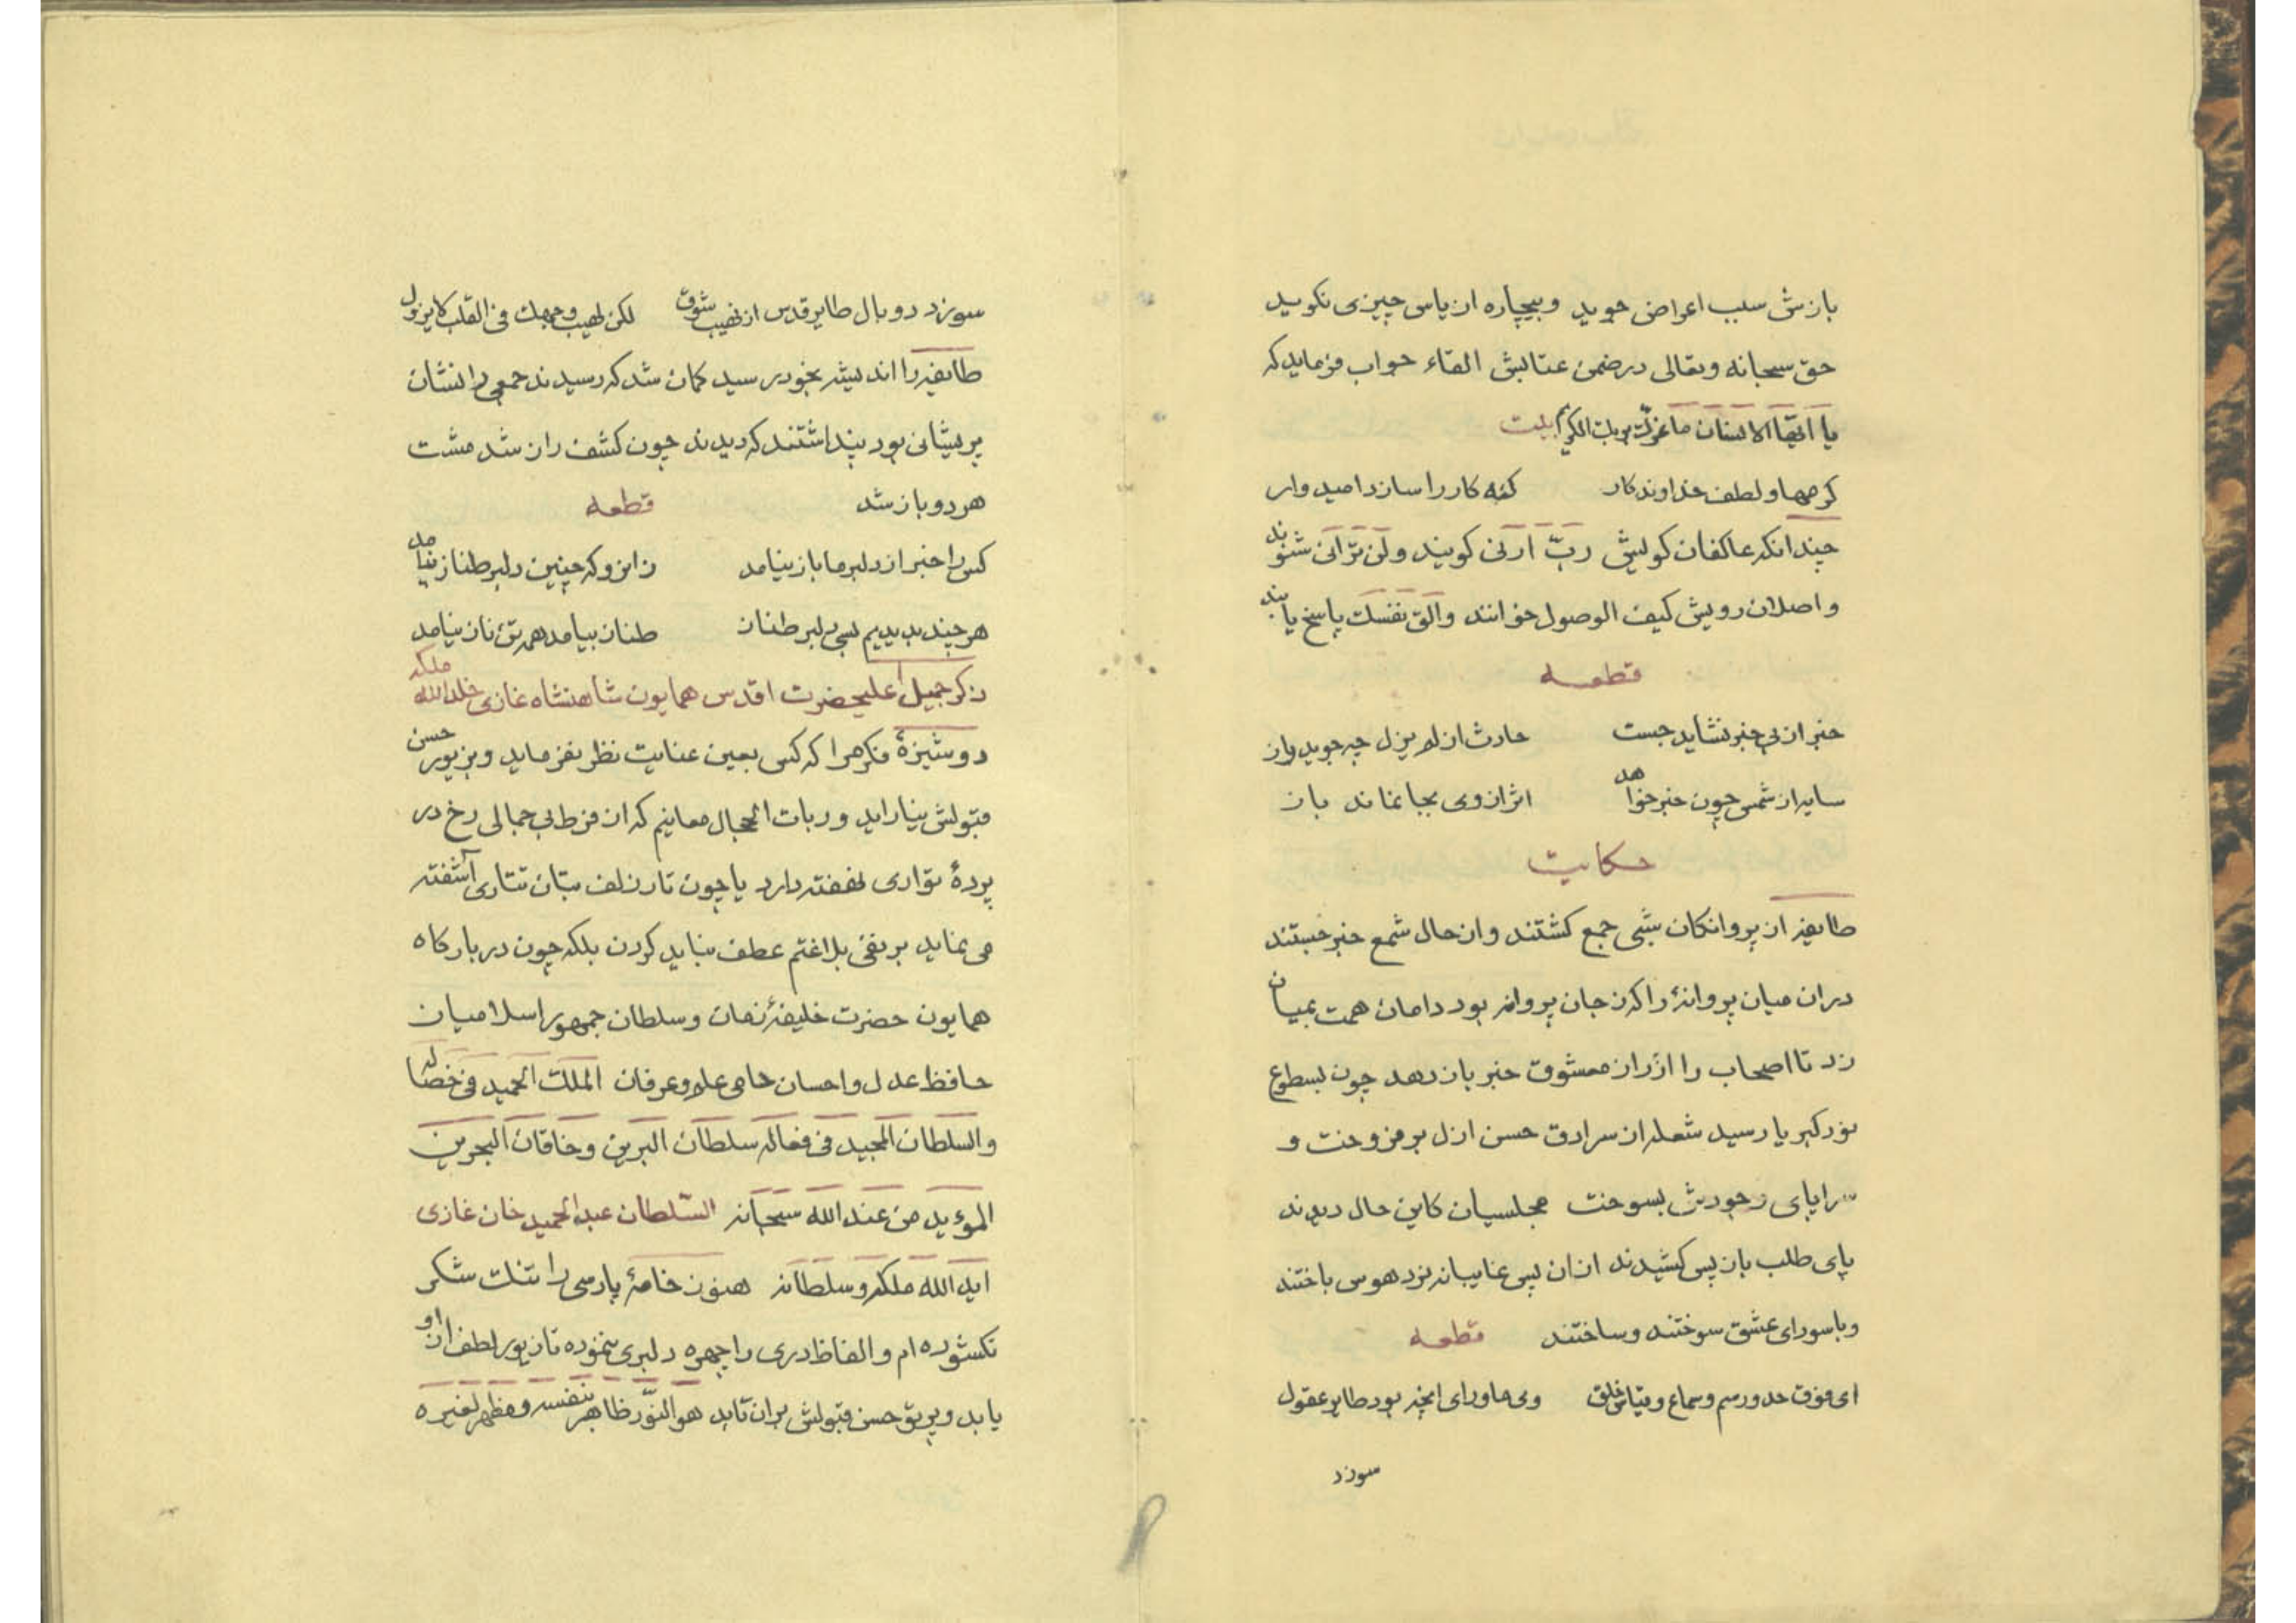 بازش سبب اعراض جوید وبیچاره از یاس چیزی نکوید
حق سبحانه وتعالی درضمن عتابش القاء جواب فرماید که
یا ایّها الانسان ما غرّك بربك الکریم بیت
کرمها و لطف خداوندکار کنه کار را سازد امیدوار
چندانکه عاکفان کویش ربّ ارنی کویند ولن ترانی شنوند
واصلان رویش کیف الوصول خوانند والق نفسك پاسخ یابند
قطعه
خبر از بی خبر نشاید جست حادث از لم یزل چه جوید باز
سایه از شمس چون خبر خواهد اثر از وی بجا نماند باز
حکایت
طایفه از پروانکان شبی جمع کشتند و از حال شمع خبر جستند
دران میان پروانۀ را که ز جان پروانه بود دامان همت بمیان
زد تا اصحاب را از راز معشوق خبر باز دهد چون بسطوع
نور کبریا رسید شعله از سرادق حسن ازل برفروخت و
سراپای وجودش بسوخت مجلسیان کاین حال دیدند
پای طلب باز پس کشیدند ازان پس غایبانه نرد هوس باختند
وباسودای عشق سوختند وساختند قطعه
ای فوق حد ورسم وسماع وقیاس خلق وی ماورای انچه بود طایر عقول
سوزد
سوزد دو بال طایر قدس از نهیب شوق لکن لهیب وجهك فی القلب کایزول
طایفه را اندیشه بخود رسید کمان شد که رسیدند جمعی را نشان
پریشانی بود پنداشتند که دیدند چون کشف راز شد مشت
هر دو باز شد قطعه
کس را خبر از دلبر ما باز نیامد زانرو که چنین دلبر طناز نیامد
هر چند بدیدیم بسی دلبر طناز طناز بیامد همه تن ناز نیامد
ذکر جمیل اعلیحضرت اقدس همایون شاهنشاه غازی خلد الله ملکه
دوشیزۀ فکرهرا که کس بعین عنایت نظر نفرماید وبزیور حسن
قبولش نیاراید وربات الحجال معانیم که از فرط بی جمالی رخ در
پردۀ تواری نهفته دارد یا چون تار زلف بتان تتاری آشفته
می نماید بر نفی بلاغتم عطف نباید کردن بلکه چون دربارکاه
همایون حضرت خلیفۀ زمان وسلطان جمهور اسلامیان
حافظ عدل واحسان حامی علم وعرفان الملك الحمید فی خصاله
والسلطان المجید فی فعاله سلطان البرین وخاقان البحرین
المؤید من عند الله سبحانه السّلطان عبد الحمید خان غازی
اید الله ملکه وسلطانه هنوز خامۀ پارسی را بتنك شکر
نکشوده ام والفاظ دری را چهره دلبری ننموده تا زیور لطف از او
یابد وپرتو حسن قبولش بران تابد هو النّور ظاهر بنفسه ومظهر لغیره